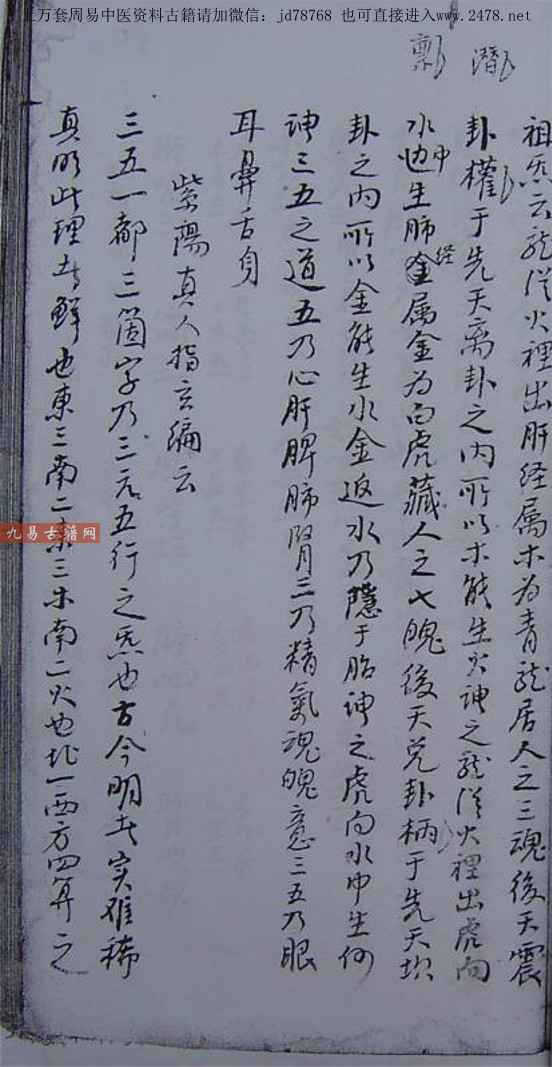 上万套周易中医资料古籍请加微信：jd78768 也可直接进入www.2478.net
潜
祖炁云龙从火裡出肝经属木为青龙居人之三魂後天震
卦權于先天离卦之内所以木能生火
之龙从火裡出虎向
水中生肺经属金为白虎藏人之七魄後天兑卦柄于先天坎
卦之内所以金能生水金返水乃隱于胎
之虎向水中生何
三五之道五乃心肝脾肺腎三乃精氣魂魄意三五乃眼
耳鼻舌身
紫陽真人指玄編云
三五一都三箇字乃三元五行之炁也古今明者实难稀
真明此理者鲜也東三南二
三木南二火也北一西方四算之
九易古籍网